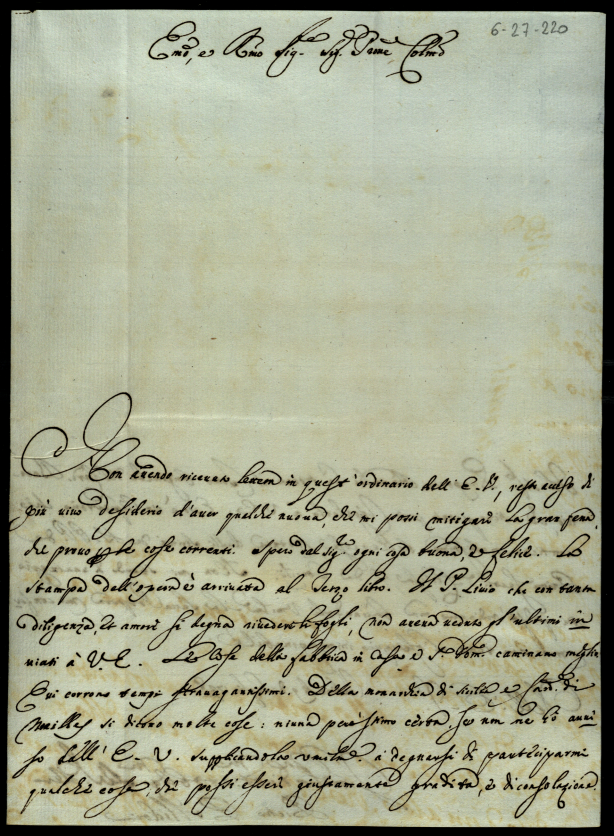 6-27-220
Emo, e Rmo Sig.re Sig. Prone Colmo
Non avendo ricevuto lettera in quest'ordinario dell'E.V., resto acceso di
più vivo desiderio d'aver qualche nuova, che mi possi mitigare la gran pena,
che provo le cose correnti. Spero dal Sig.re ogni cosa buona e felice. La
stampa dell'opera è arrivata al terzo libro. Il P. Livio che con tanta
diligenza, et amore si degna rivedere li fogli, non aveva veduto gl'ultimi in
viati à V.E. Le cose della fabbrica in casa e caminano meglio
Qui corrono tempi stravagantissimi. Della monarchia di Sicilia e Card. di
Noailles si dicono molte cose: niuna però stimo certa, se non ne hò avvi
so dall'E.V. supplicandola umilm.te a degnarsi di parteciparmi
qualche cosa, che possi essere giustamente gradita, e di consolazione.